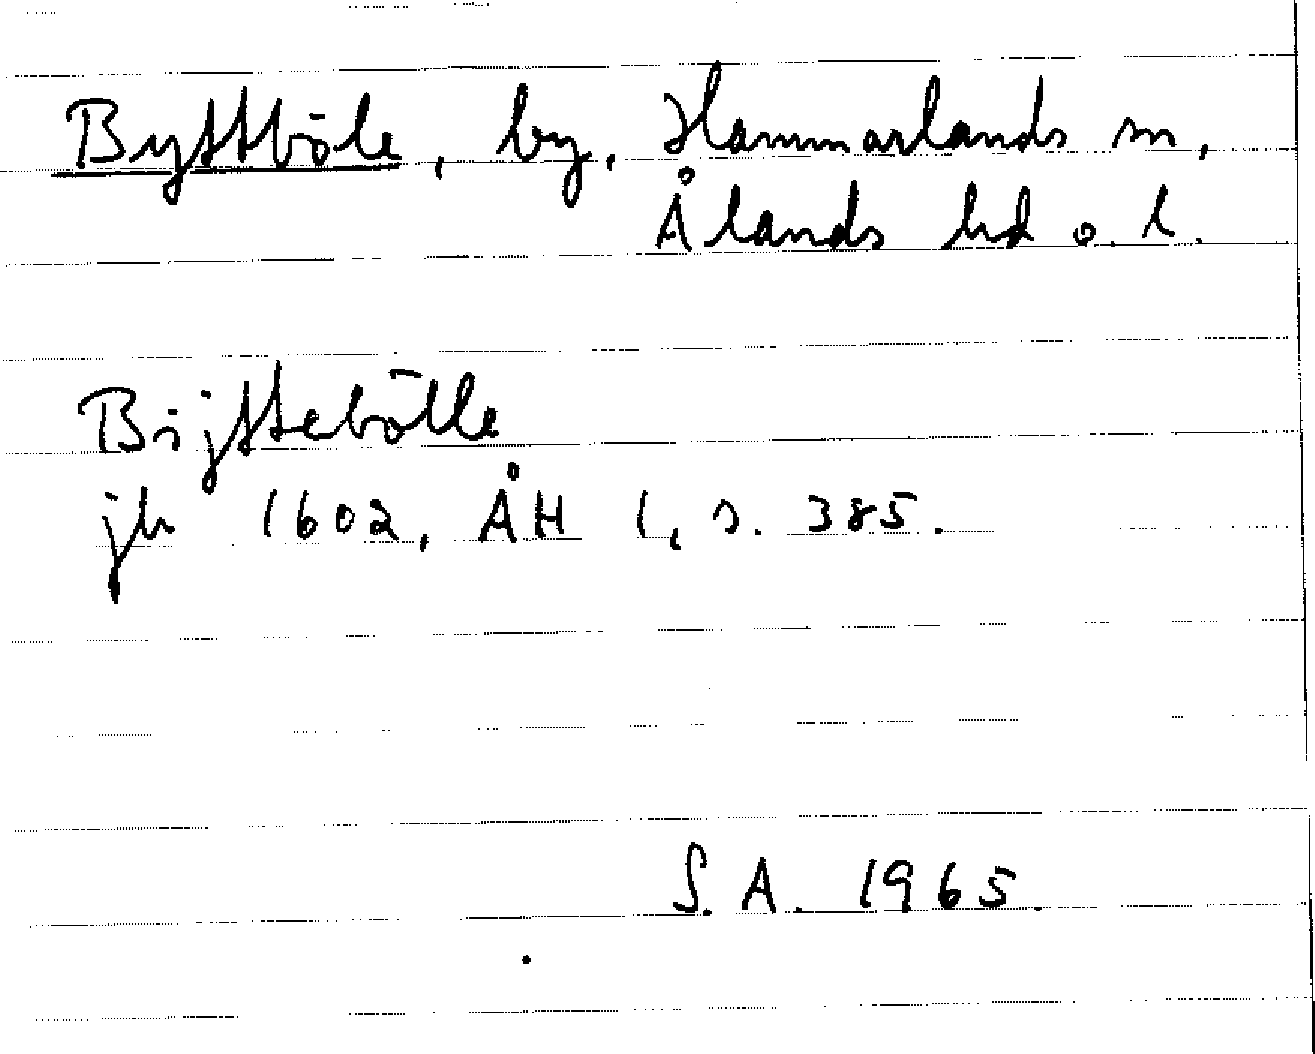 Byttböle, by, Hammarlands sn,
Ålands hd o. l.
Bijttebölle
jb 1602, ÅH 1, s. 385.
S. A. 1965.